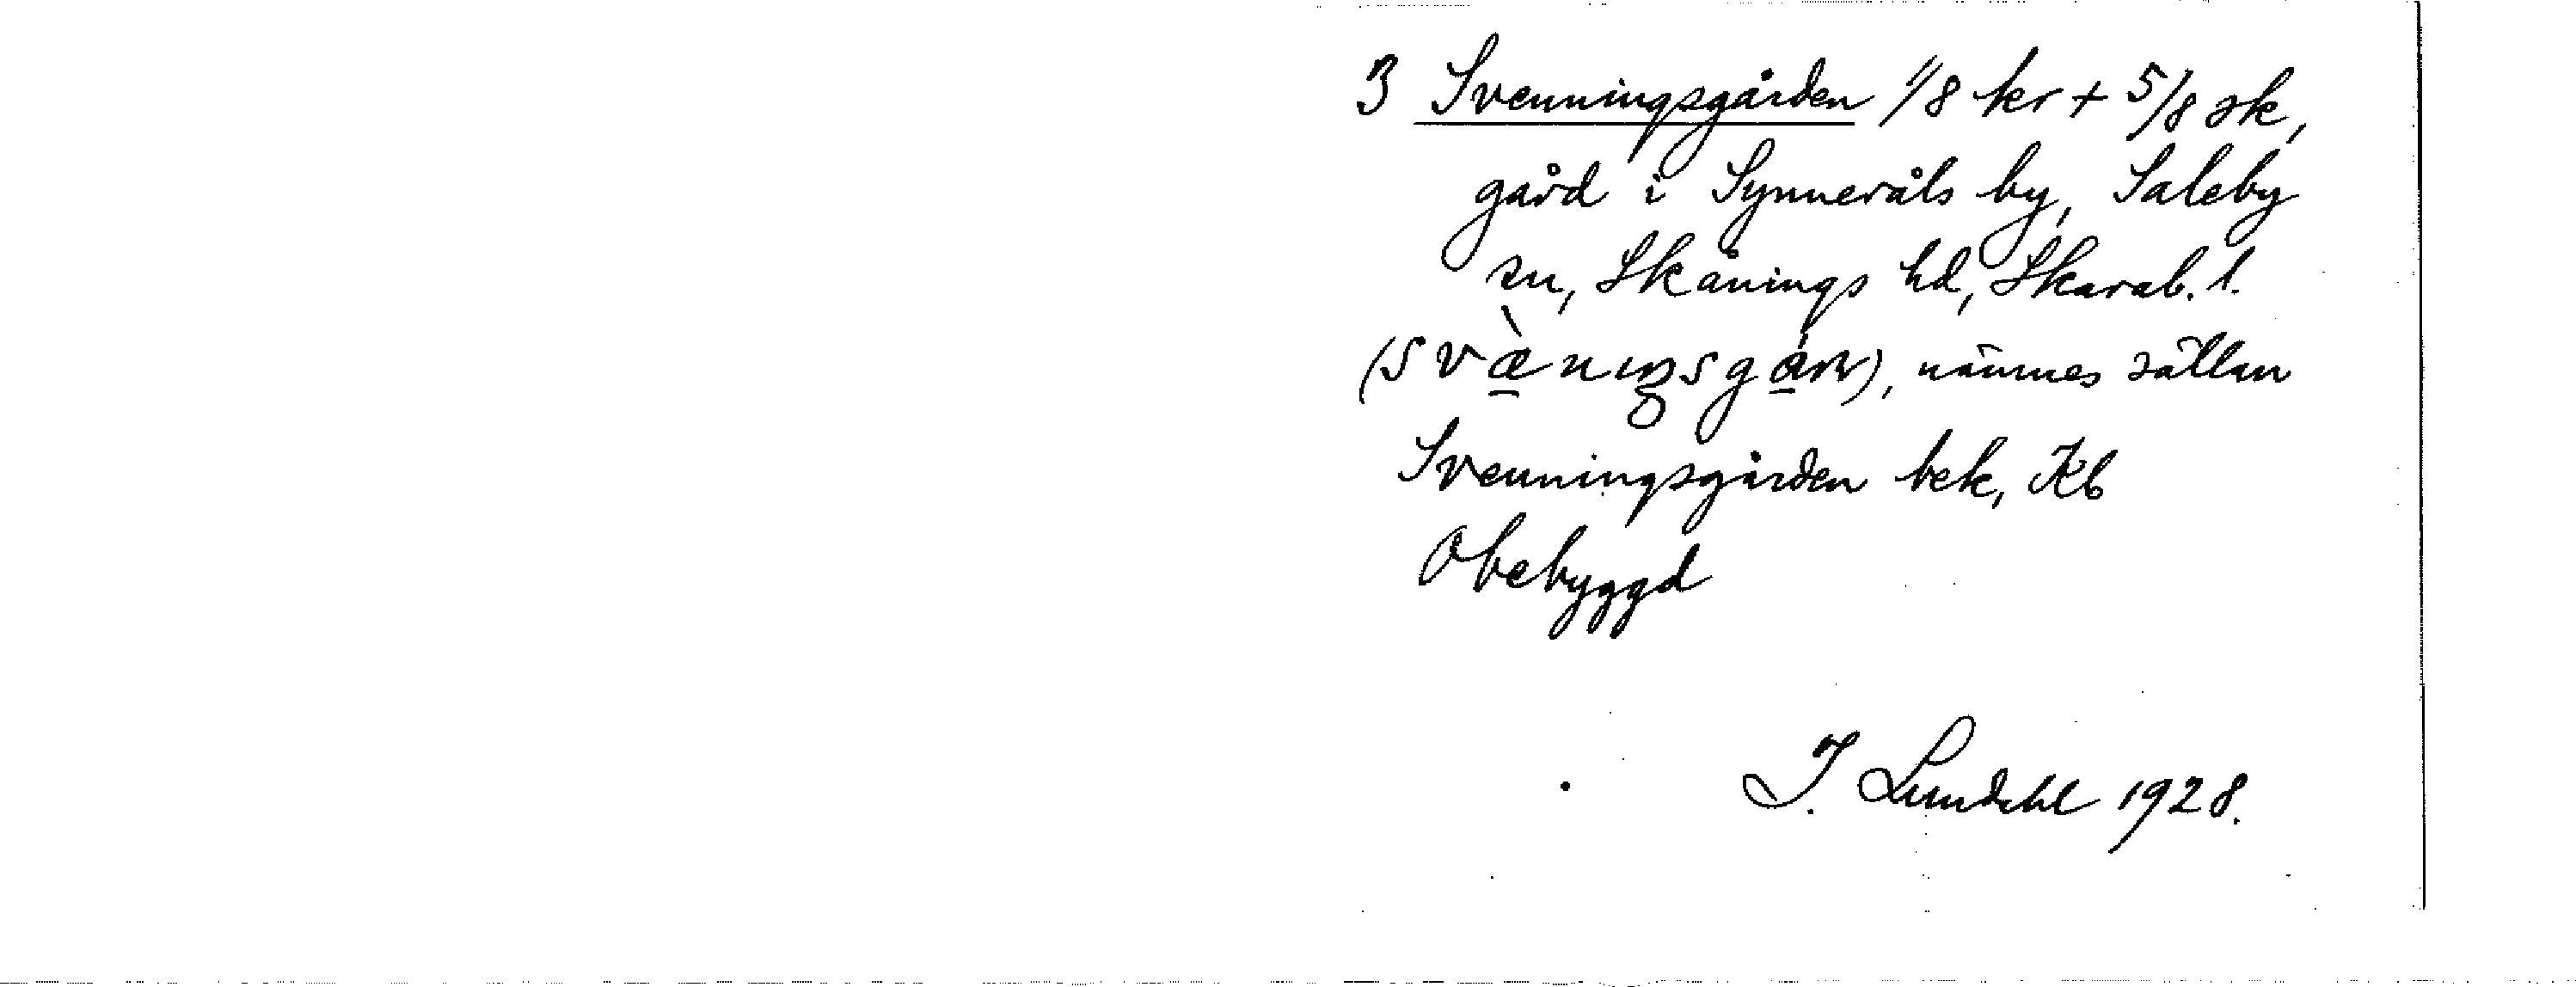 3 Svenningsgården 1/8 kr + 5/8 sk,
gård i Synneråls by, Saleby
sn, Skånings hd, Skarab. l.
nämnes sällan
Svenningsgården bek, Kb
Obebyggd
I. Lundahl 1928.